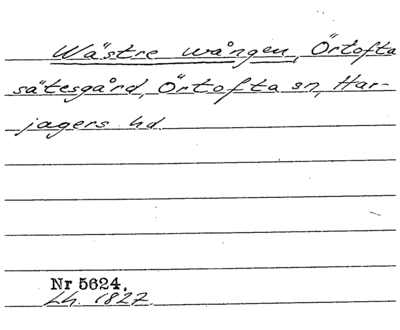 Wästre wången, Örtofta
sätesgård, Örtofta sn, Har-
jagers hd
Nr 5624.
Lh. 1827.